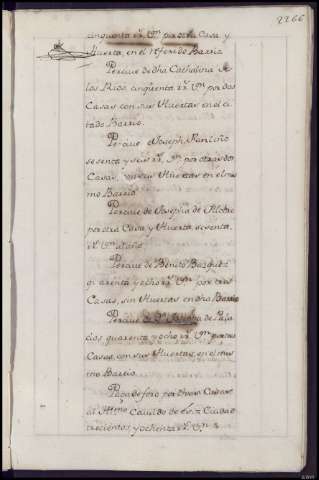 2266
cinquenta rr.s Vm por otra Casa y
Huerta, en el referido Barrio
Percive de dha Cathalina de
los Rios cinquenta rr.s Vm por dos
Casas con sus Huertas en el ci
tado Barrio.
Percive Joseph
sesenta y seis rr.s Vm por otras dos
Casas, con sus Huertas en el mis
mo Barrio
Percive de Josepha de
por otra Casa y Huerta sesenta
rr.s Vm al año
Percive de Benito Bazquez
quarenta y ocho rr.s Vm por tres
Casas, sin Huertas en dho Barrio
Percive de Da. de Pala
cios quarenta y ocho rr.s Vm por tres
Casas con sus Huertas, en el mis
mo Barrio.
Paga de foro por dhas Casas
al Illmo Cavildo de esta Ciudad
trecientos y ochenta rr.s Vm